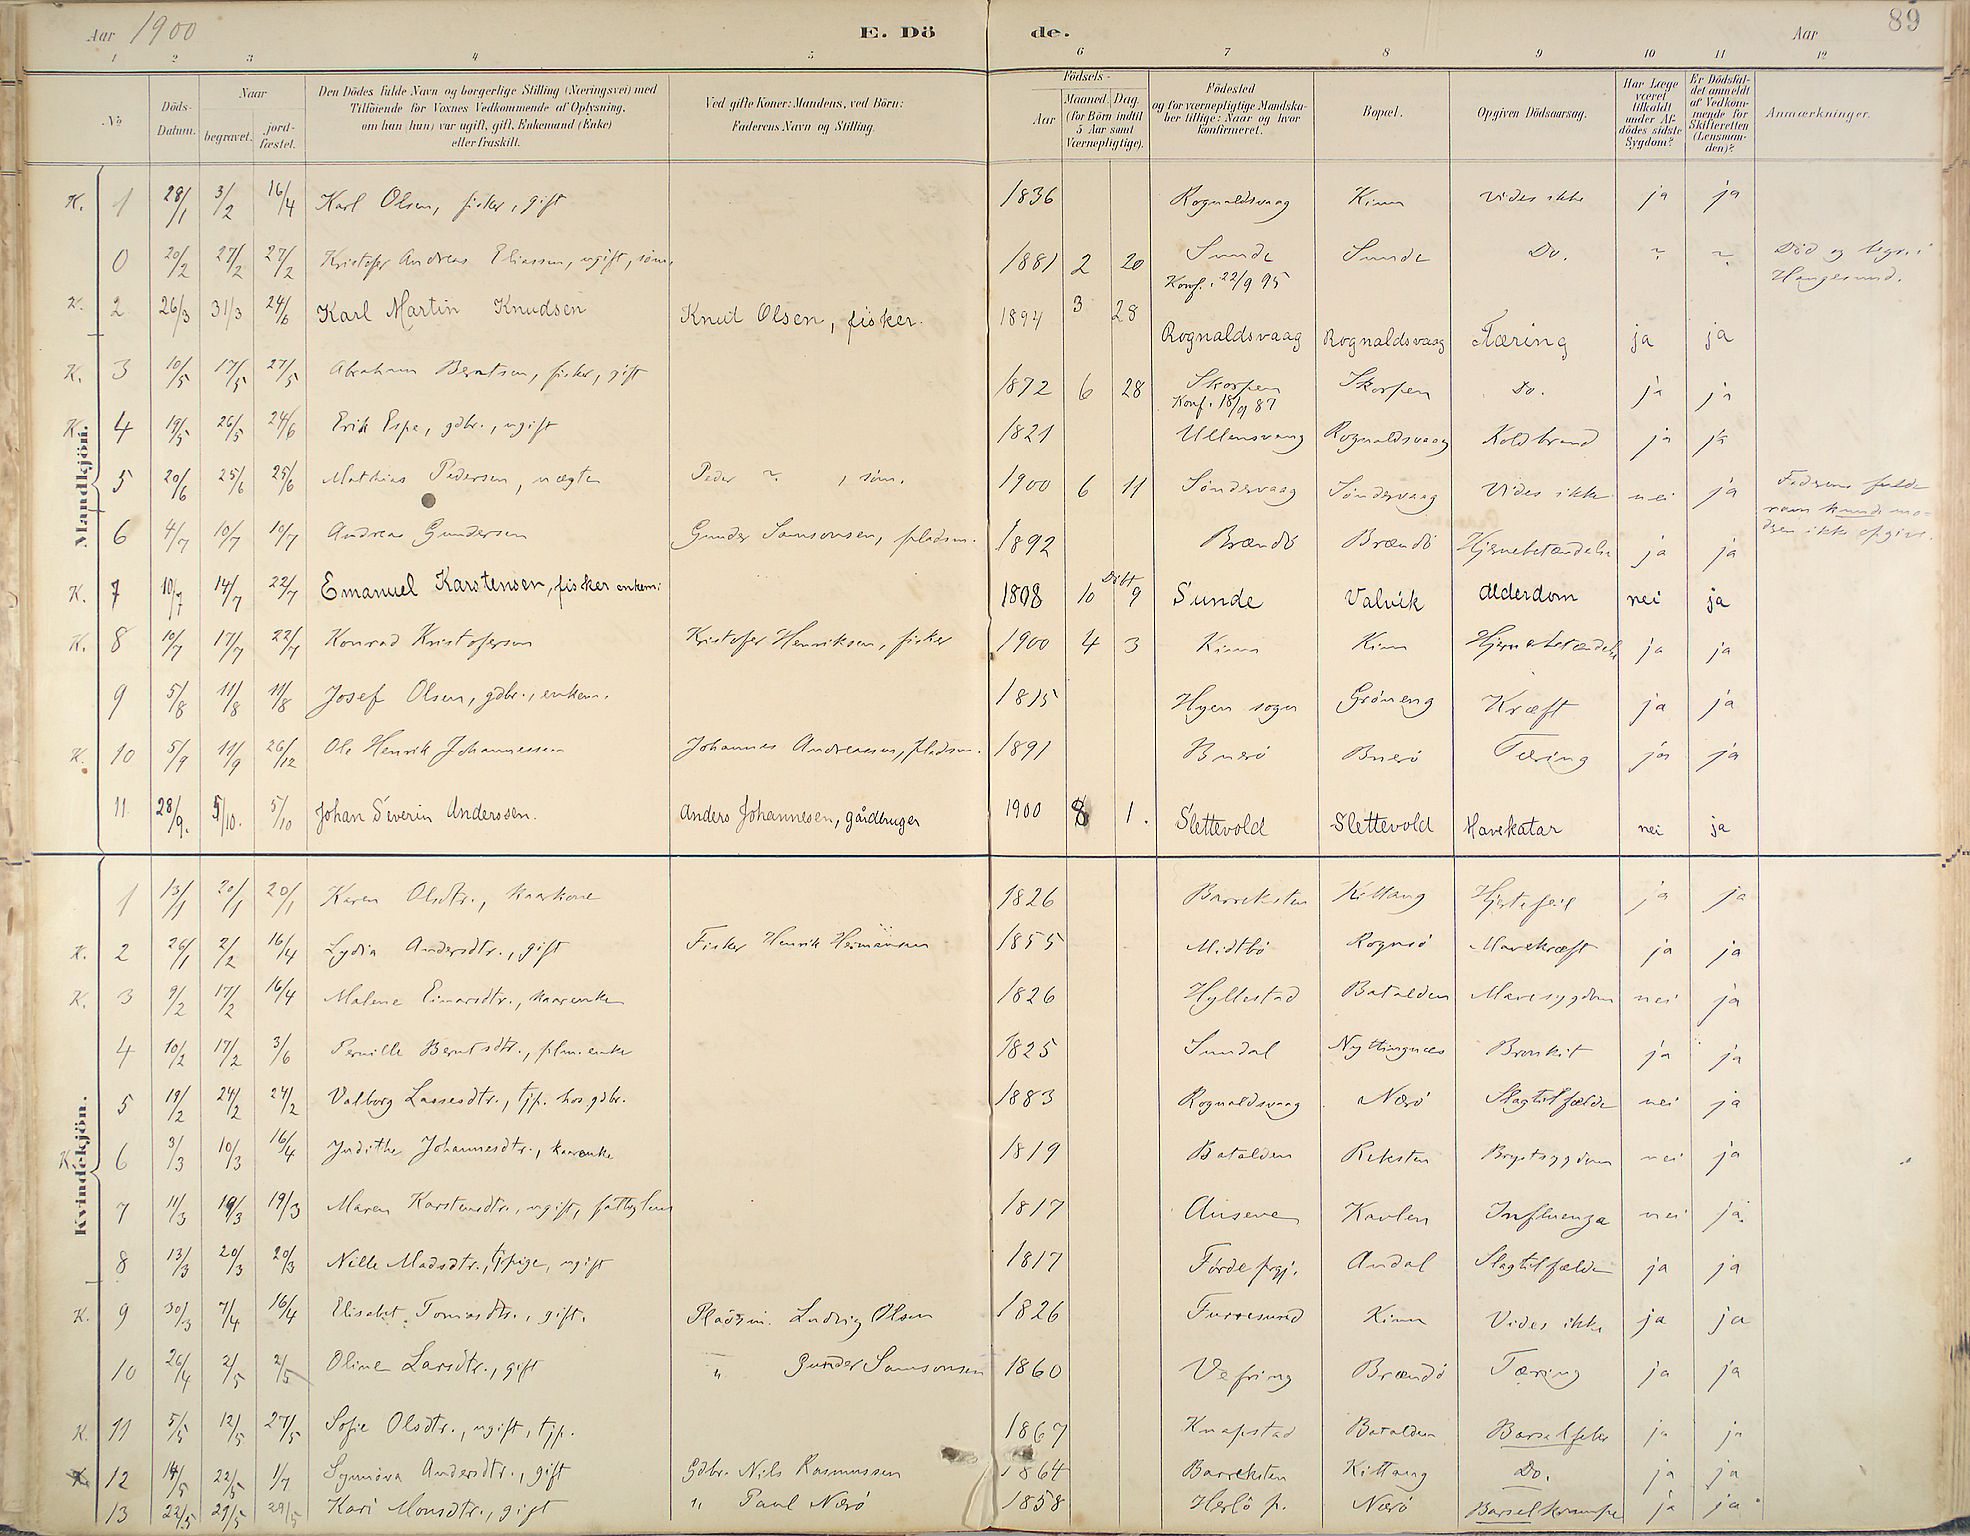 Aar 1900 E. Dö de. Aar 89
1 2 3 4 5 6 7 8 9 10 11 12
No Döds-Datum. Naar begravet. jord-fæstet. Den Dödes fulde Navn og borgerlige Stilling (Næringsvei) med Tilföiende for Voxnes Vedkommende af Oplysning, om han (hun) var ugift, gift, Enkemand (Enke) eller fraskilt. Ved gifte Koner: Mandens, ved Börn: Faderens Navn og Stilling. Födsels- Aar Maaned. Dag. (for Börn indtil 5 Aar samt Værnepligtige). Födested og for værnepligtige Mandskaber tillige: Naar og hvor konfirmeret. Bopæl. Opgiven Dödsaarsag. Har Læge været tilkaldt under Afdödes sidste Sygdom? Er Dödsfaldet anmeldt af Vedkommende for Skifteretten (Lensmanden)? Anmærkninger.
Mandkjön.
K. 1 28/1 3/2 16/4 Karl Olsen, fisker, gift 1836 Rognaldsvaag Kinn Vides ikke ja ja
0 20/2 27/2 27/2 Kristofer Andreas Eliassen, ugift, søm. 1881 2 20 Sunde Konf. 22/9 95 Sunde Do. ~ ~ Död og begr. i Haugesund.
K. 2 26/3 31/3 24/6 Karl Martin Knudsen Knut Olsen, fisker. 1894 3 28 Rognaldsvaag Rognaldsvaag Tæring ja ja
K. 3 10/5 17/5 27/5 Abraham Berntsen, fisker, gift 1872 6 28 Skorpen Konf. 18/9 87 Skorpen Do. ja ja
K. 4 19/5 26/5 24/6 Erik Espe, gdbr., ugift 1821 Ullensvang Rognaldsvaag Koldbrand ja ja
5 20/6 25/6 25/6 Mathias Pedersen, uægte Peder ~ , søm. 1900 6 11 Söndervaag Söndervaag Vides ikke nei ja Faderens fulde navn kunde moderen ikke opgive.
6 4/7 10/7 10/7 Andreas Gundersen Gunder Samsonsen, pladsm. 1892 Brændö Brændö Hjernebetændelse ja ja
K. 7 10/7 14/7 22/7 Emanuel Karstensen, fisker enkem: 1808 10 Döbt 9 Sunde Valvik Alderdom nei ja
K. 8 10/7 17/7 22/7 Konrad Kristofersen Kristofer Henriksen, fisker 1900 4 3 Kinn Kinn Hjernebetændelse ja ja
9 5/8 11/8 11/8 Josef Olsen, gdbr., enkem. 1815 Hyen sogn Gröneng Kræft ja ja
K. 10 5/9 11/9 26/12 Ole Henrik Johannessen Johannes Andreassen, pladsm. 1891 Buerö Buerö Tæring ja ja
11. 28/9. 5/10. 5/10 Johan Severin Anderssen. Anders Johannesen, gårdbruger 1900 8 1. Slettevold Slettevold Mavekatar nei ja
Kvindekjön.
1 13/1 20/1 20/1 Karen Olsdtr., kaarkone 1826 Barreksten Kittang Hjertefeil ja ja
K. 2 26/1 2/2 16/4 Lydia Andersdtr., gift Fisker Henrik Heimansen 1855 Midtbö Rognö Mavekræft ja ja
K. 3 9/2 17/2 16/4 Malene Einarsdtr., kaarenke 1826 Hyllestad Batalden Mavesygdom nei ja
4 10/2 17/2 3/6 Pernille Berntsdtr., plm. enke 1825 Sundal Nyttingnæs Bronkit ja ja
5 19/2 24/2 24/2 Valborg Lassesdtr., tjp. hos gdbr. 1883 Rognaldsvaag Nærö Slagtilfælde nei ja
K. 6 3/3 10/3 16/4 Judithe Johannesdtr., kaarenke 1819 Batalden Reksten Brystsygdom nei ja
7 11/3 19/3 19/3 Maren Karstensdtr., ugift, fattiglem 1817 Ausenen Kvalen Influenza nei ja.
8 13/3 20/3 20/3 Nille Madsdtr., tjpige, ugift 1817 Förde prgj. Andal Slagtilfælde ja ja
K. 9 30/3 7/4 16/4 Elisabet Tomasdtr., gift. Pladsm. Ludvig Olsen 1826 Furresund Kinn Vides ikke ja ja
10 26/4 2/5 2/5 Oline Larsdtr., gift " Gunder Samsonsen 1860 Vefring Brændö Tæring ja ja
K. 11 5/5 12/5 27/5 Sofie Olsdtr., ugift, tjp. 1867 Knapstad Batalden Barselfeber ja ja
K. 12 14/5 22/5 1/7 Synnöva Andersdtr., gift Gdbr. Nils Rasmussen 1864 Barreksten Kittang Do. ja ja
13 22/5 29/5 29/5 Kari Monsdtr., gift " Paul Nærö 1858 Herlö p. Nærö Barselkrampe ja ja